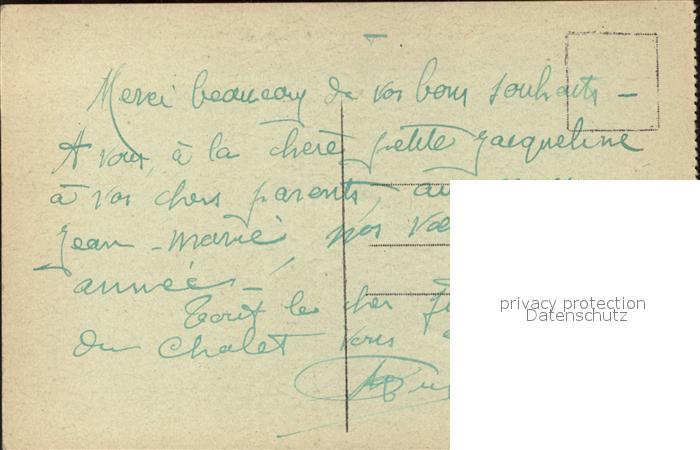 Merci beaucoup de vos bons souhaits –
A vous, à la chère petite Jacqueline
à vos chers parents,
Jean-Marie, nos
année –
Tout le cher
du Chalet vous
privacy protection
Datenschutz